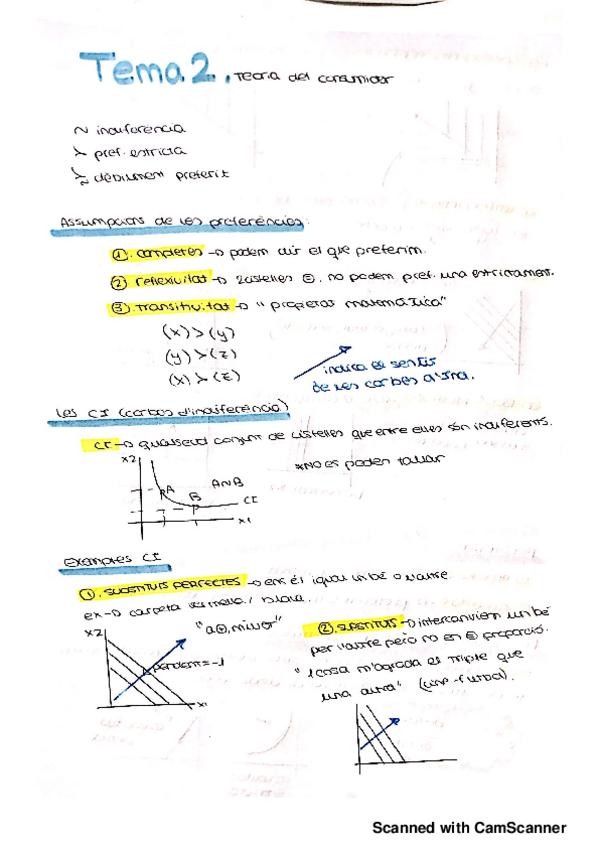 Tema 2. Teoria del consumidor
~ indiferència
≻ pref. estricta
≿ dèbilment preferit
Assumpcions de les preferències:
①. completes → podem dir el que preferim.
② reflexivitat → 2 cistelles =, no podem pref. una estrictament.
③ transitivitat → "propietat matemàtica"
(x) ≻ (y)
(y) ≻ (z)
(x) ≻ (z)
indica el sentit
de les corbes d'indif.
Les CI (corbes d'indiferència)
CI → qualsevol conjunt de cistelles que entre elles són indiferents.
*NO es poden tallar
x2
A
B
A~B
CI
x1
Exemples CI
①. SUBSTITUTS PERFECTES → ens és igual un bé o l'altre
ex → carpeta vermella / blava.
x2
pendent = -1
x1
②. SUBSTITUTS → intercanviem un bé
per l'altre però no en = proporció.
"1 cosa m'agrada el triple que
una altra"
Scanned with CamScanner